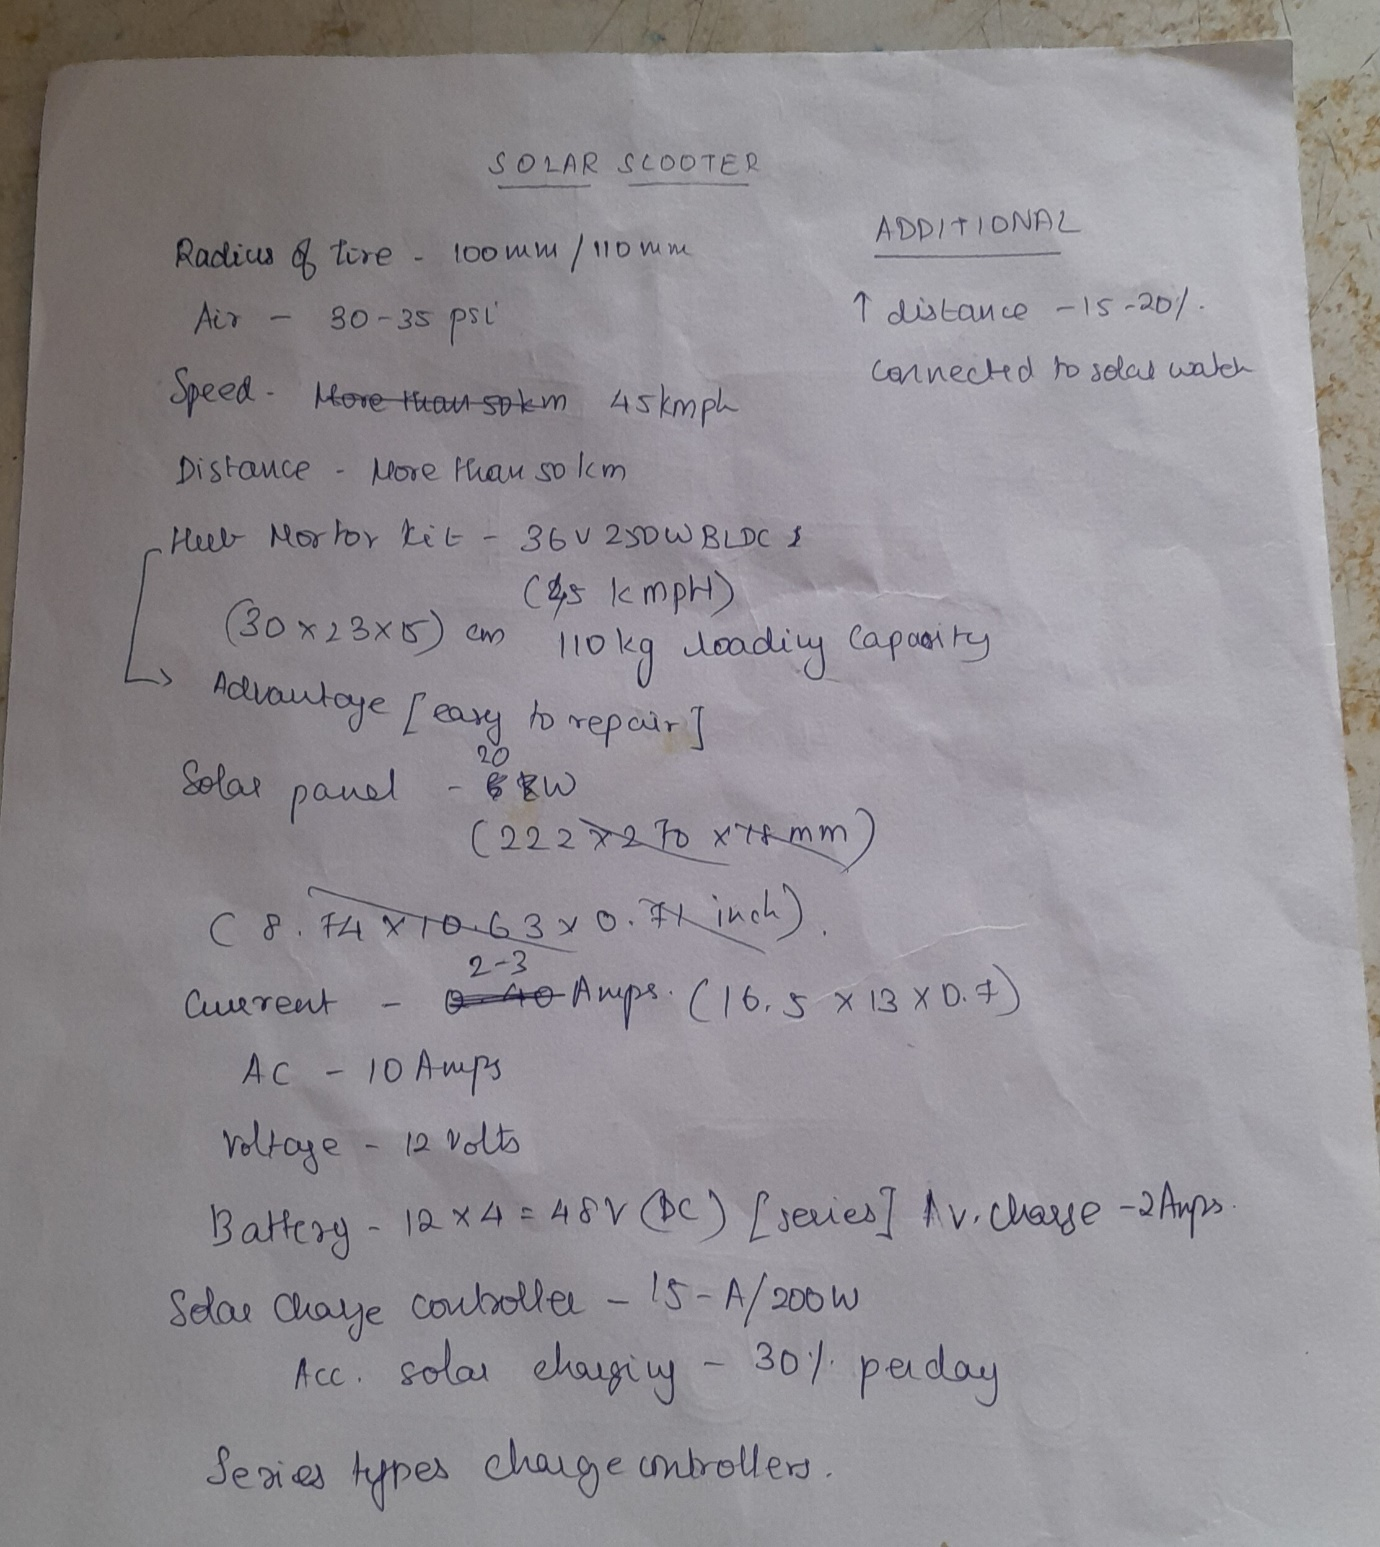 SOLAR SCOOTER
Radius of tire - 100mm / 110mm
Air - 30-35 psi
Speed - More than 50km 45kmph
Distance - More than 50km
Hub Mortor kit - 36V 250W BLDC
(45 kmpH)
(30 x 23 x 15) cm 110kg loading Capacity
Advantage [easy to repair]
Solar panel - 20 W
(222 x 270 x 78 mm)
(8.74 x 10.63 x 0.71 inch).
Current - 2-3 Amps. (16.5 x 13 x 0.7)
AC - 10 Amps
Voltage - 12 Volts
Battery - 12 x 4 = 48V (DC) [series] Av. Charge - 2Amps.
Solar Charge controller - 15-A/200W
Acc. solar charging - 30% per day
Series types charge controllers.
ADDITIONAL
↑ distance - 15-20%.
Connected to solar watch